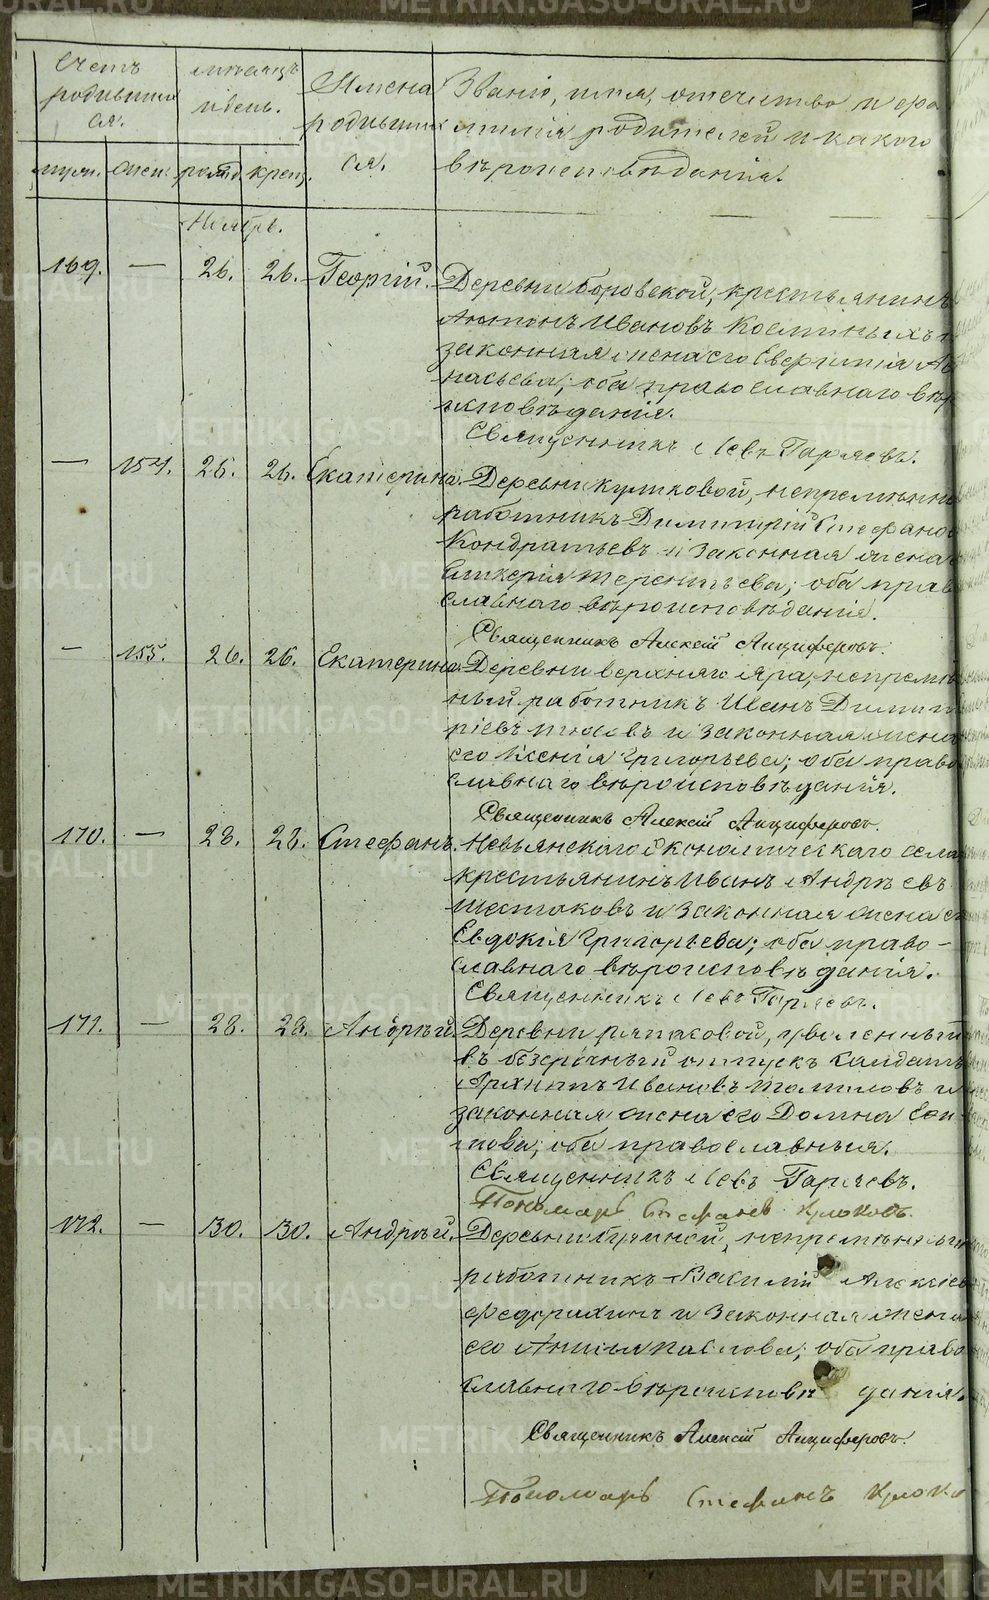 Счетъ
родивших
ся.
мѣсяцъ
и день.
Имена
родивших
ся.
Званіе, имя, отечество и фа
милія родителей и какого
вѣроисповѣданія.
муж. жен. рожд. крещ.
Ноябрь.
169. — 26. 26. Георгій. Деревни Боровской, крестьянинъ
Антонъ Ивановъ Косминыхъ и
законная жена его Евфимія Аѳ
насьева; оба православнаго вѣр
исповѣданія.
Священникъ Левъ Гаряевъ.
— 154. 25. 26. Екатерина. Деревни Куликовой, непремѣнно
работникъ Димитрій Стефанов
Кондратьевъ и законная жена
Гликерія Терентьева; оба прав
славнаго вѣроисповѣданія.
Священникъ Алексій Анциферовъ.
— 155. 26. 26. Екатерина. Деревни верхняго Яра, непремѣн
ный работникъ Иванъ Димит
ріевъ и законная жена
его Ксенія Григорьева; оба право
славнаго вѣроисповѣданія.
Священникъ Алексій Анциферовъ.
170. — 28. 28. Стефанъ. Невьянскаго Экономическаго села
крестьянинъ Иванъ Андреевъ
Шестаковъ и законная жена е
Евдокія Григорьева; оба право-
славнаго вѣроисповѣданія.
Священникъ Левъ Гаряевъ.
171. — 28. 28. Андрей. Деревни Ряпасовой, уволенный
въ безсрочный отпускъ салдатъ
Архипъ Ивановъ Томиловъ и
законная жена его Домна Еси
пова; оба православныя.
Священникъ Левъ Гаряевъ.
Пономарь Стефанъ Клюковъ.
172. — 30. 30. Андрей. Деревни непремѣнный
работникъ Василій Алексѣев
Федорахинъ и законная жена
его Анисья Павлова; оба право
славнаго вѣроисповѣ данія.
Священникъ Алексій Анциферовъ.
Пономарь Стефанъ Клюко
METRIKI.GASO-URAL.RU